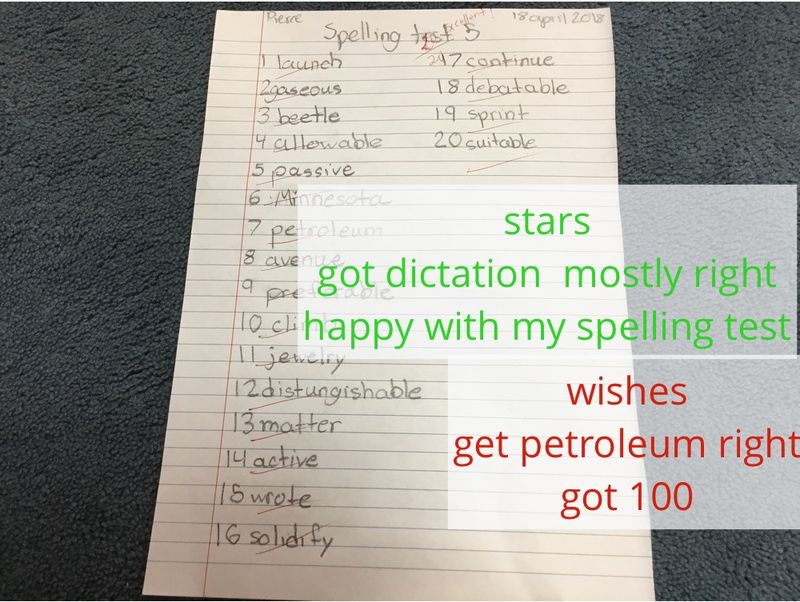 Pierre
18 april 2018
Excellent!
Spelling test 5
1 launch
2 gaseous
3 beetle
4 allowable
5 passive
6 Minnesota
7 petroleum
8 avenue
9 preferable
10 climb
11 jewelry
12 distungishable
13 matter
14 active
15 wrote
16 solidify
17 continue
18 debatable
19 sprint
20 suitable
stars
got dictation mostly right
happy with my spelling test
wishes
get petroleum right
got 100